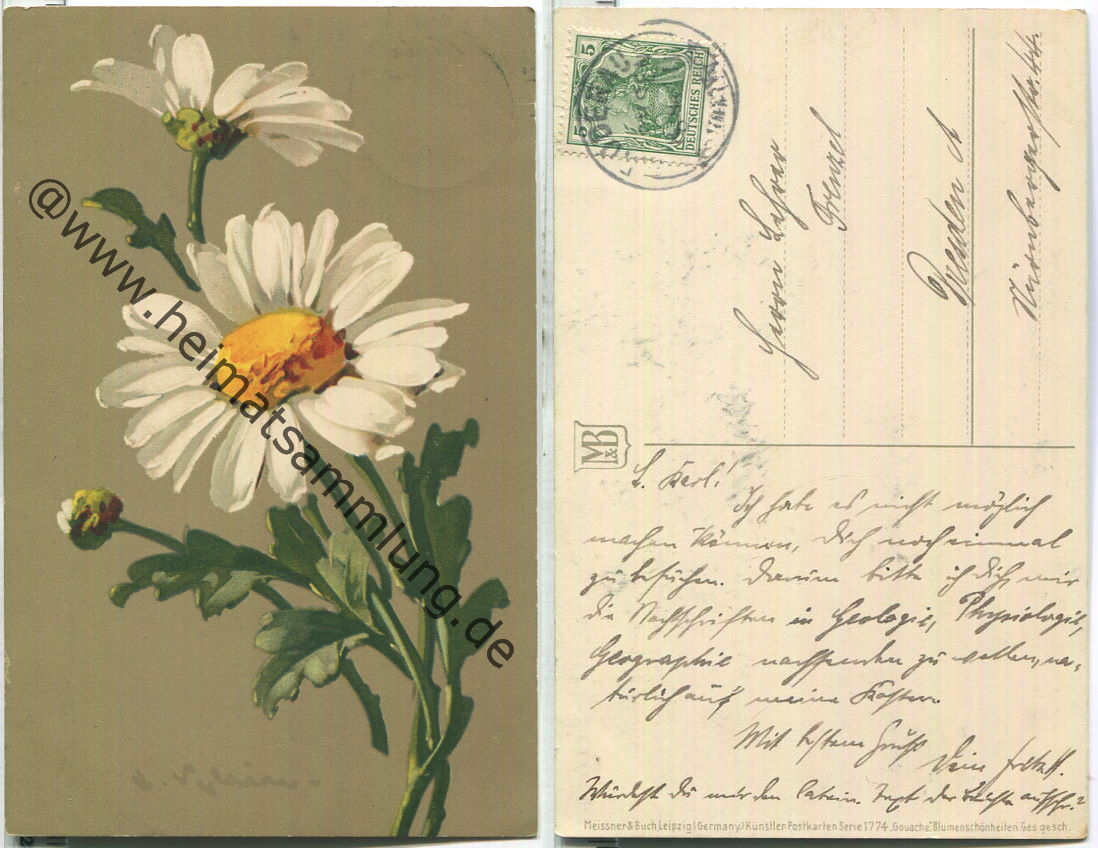 @www.heimatsammlung.de
5 5
DEUTSCHES REICH
Herrn Lehrer
Frenzel
Dresden A
Nürnbergerstr. 44.
M&B
L. Karl!
Ich habe es nicht möglich
machen können, Dich noch einmal
zu besuchen. Darum bitte ich Dich, mir
die Nachschriften in Geologie, Physiologie,
Geographie nachsenden zu wollen, na-
türlich auf meine Kosten.
Mit bestem Gruß
Dein
Würdest Du mir den latein. Text der Beichte
Meissner & Buch, Leipzig (Germany) Künstler-Postkarten Serie 1774. „Gouache“ Blumenschönheiten Ges. gesch.